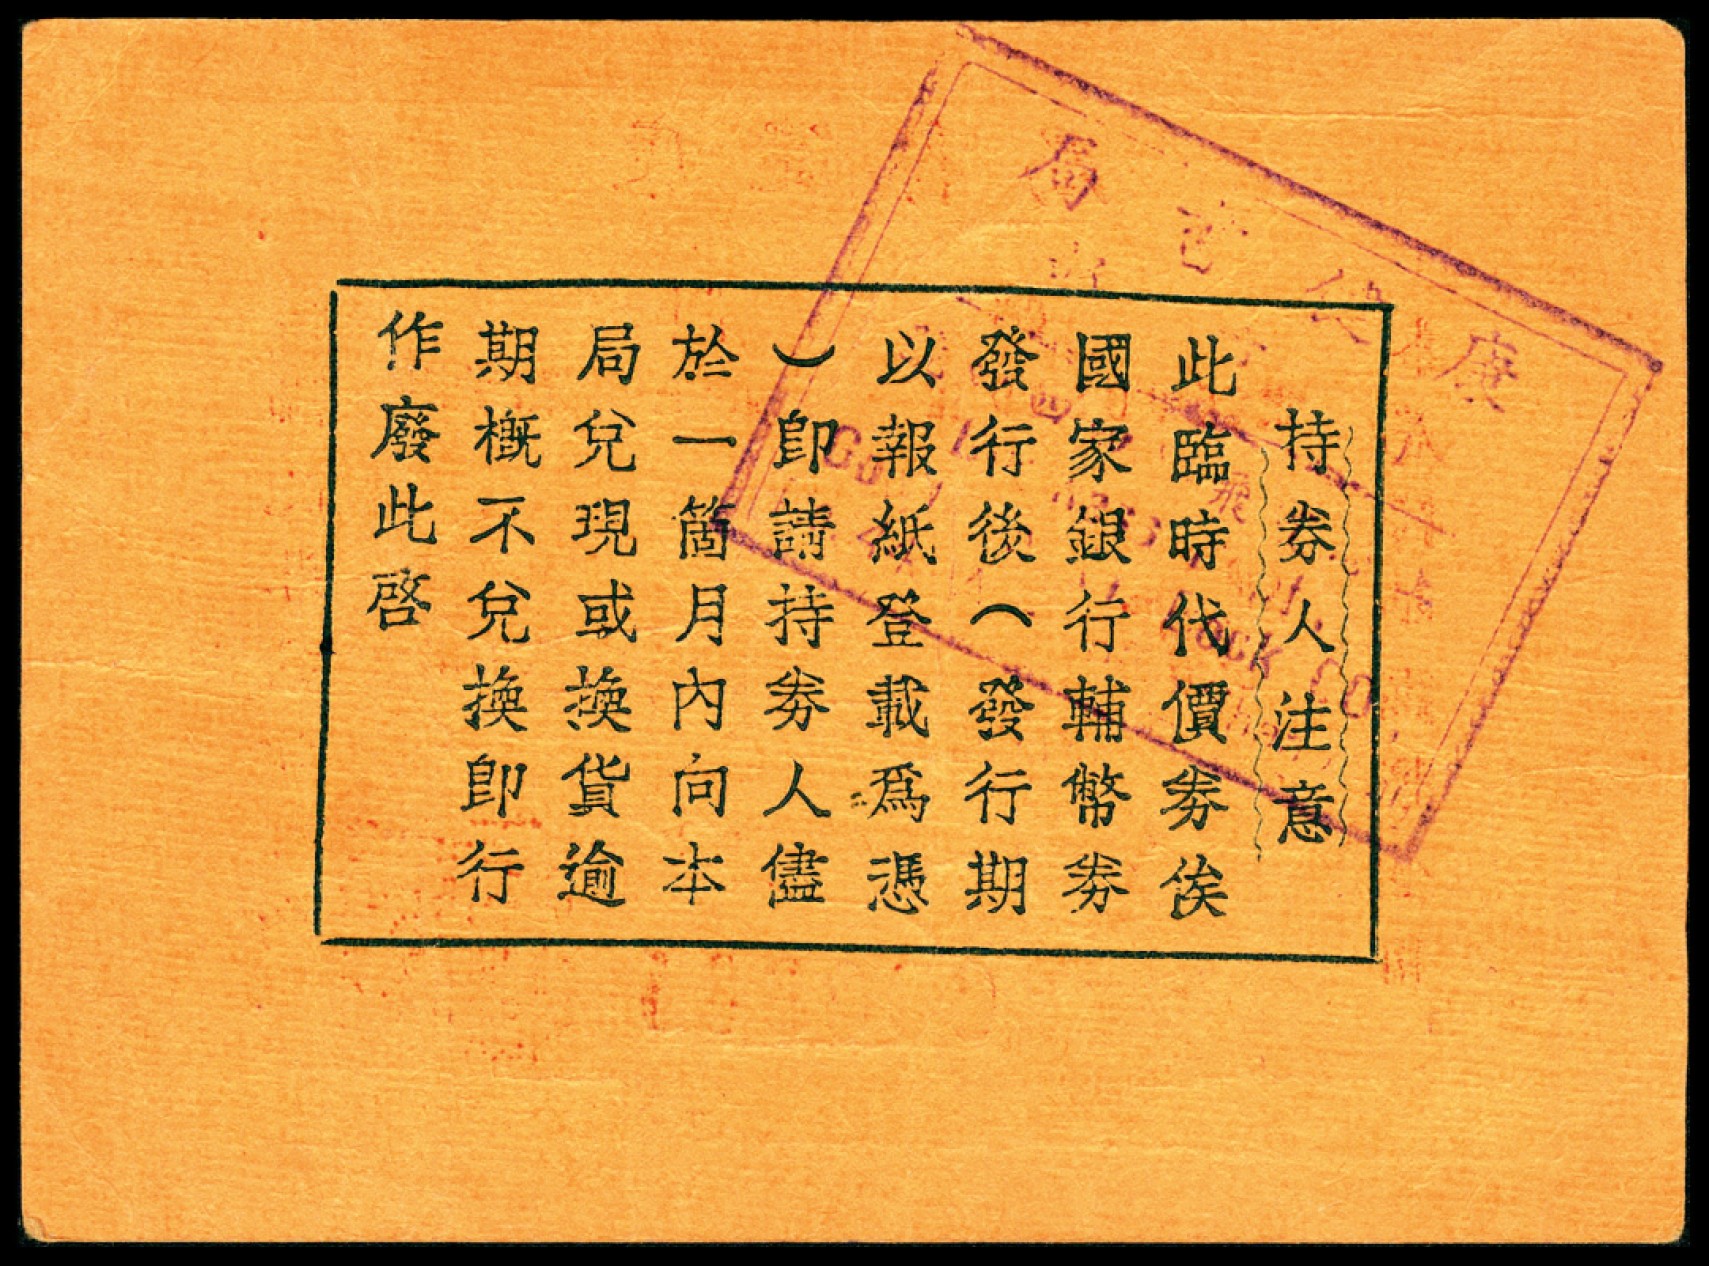 持劵人注意
此臨時代價劵俟
國家銀行輔幣劵
發行後（發行期
以報紙登載爲憑
）卽請持劵人儘
於一箇月內向本
局兌現或換貨逾
期概不兌換卽行
作廢此啓